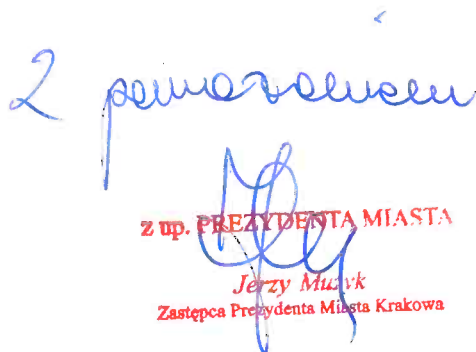 Z poważaniem
z up. PREZYDENTA MIASTA
Jerzy Muzyk
Zastępca Prezydenta Miasta Krakowa